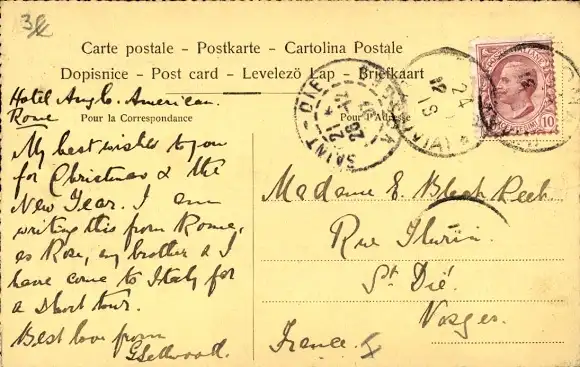 3
Carte postale - Postkarte - Cartolina Postale
Dopisnice - Post card - Levelező Lap - Briefkaart
Hotel Anglo-American.
Rome
Pour la Correspondance
Pour l'Adresse
My best wishes to you
for Christmas & the
New Year. I am
writing this from Rome,
as Rose, my brother & I
have come to Italy for
a short tour.
Best love from
SAINT-DIÉ
24
12
10
Madame E.
Rue Thurin.
St Dié.
Vosges.
France.